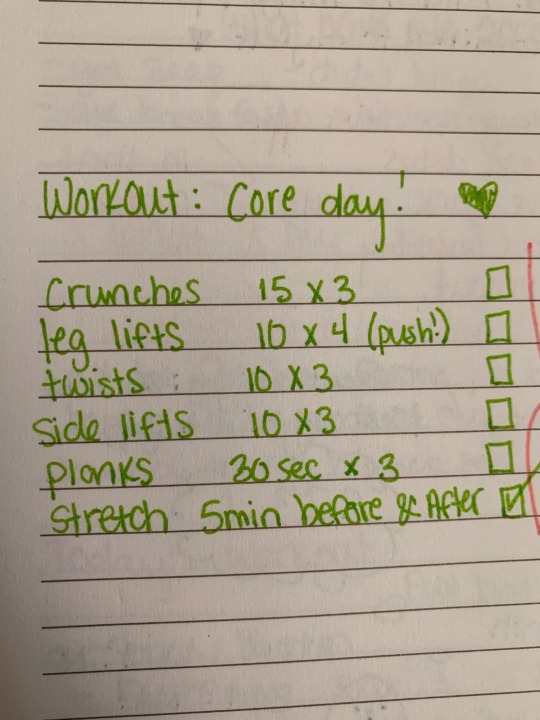 Workout: Core day! ♥
Crunches 15 x 3 ☐
leg lifts 10 x 4 (push!) ☐
twists 10 x 3 ☐
side lifts 10 x 3 ☐
planks 30 sec x 3 ☐
stretch 5min before & After ☑